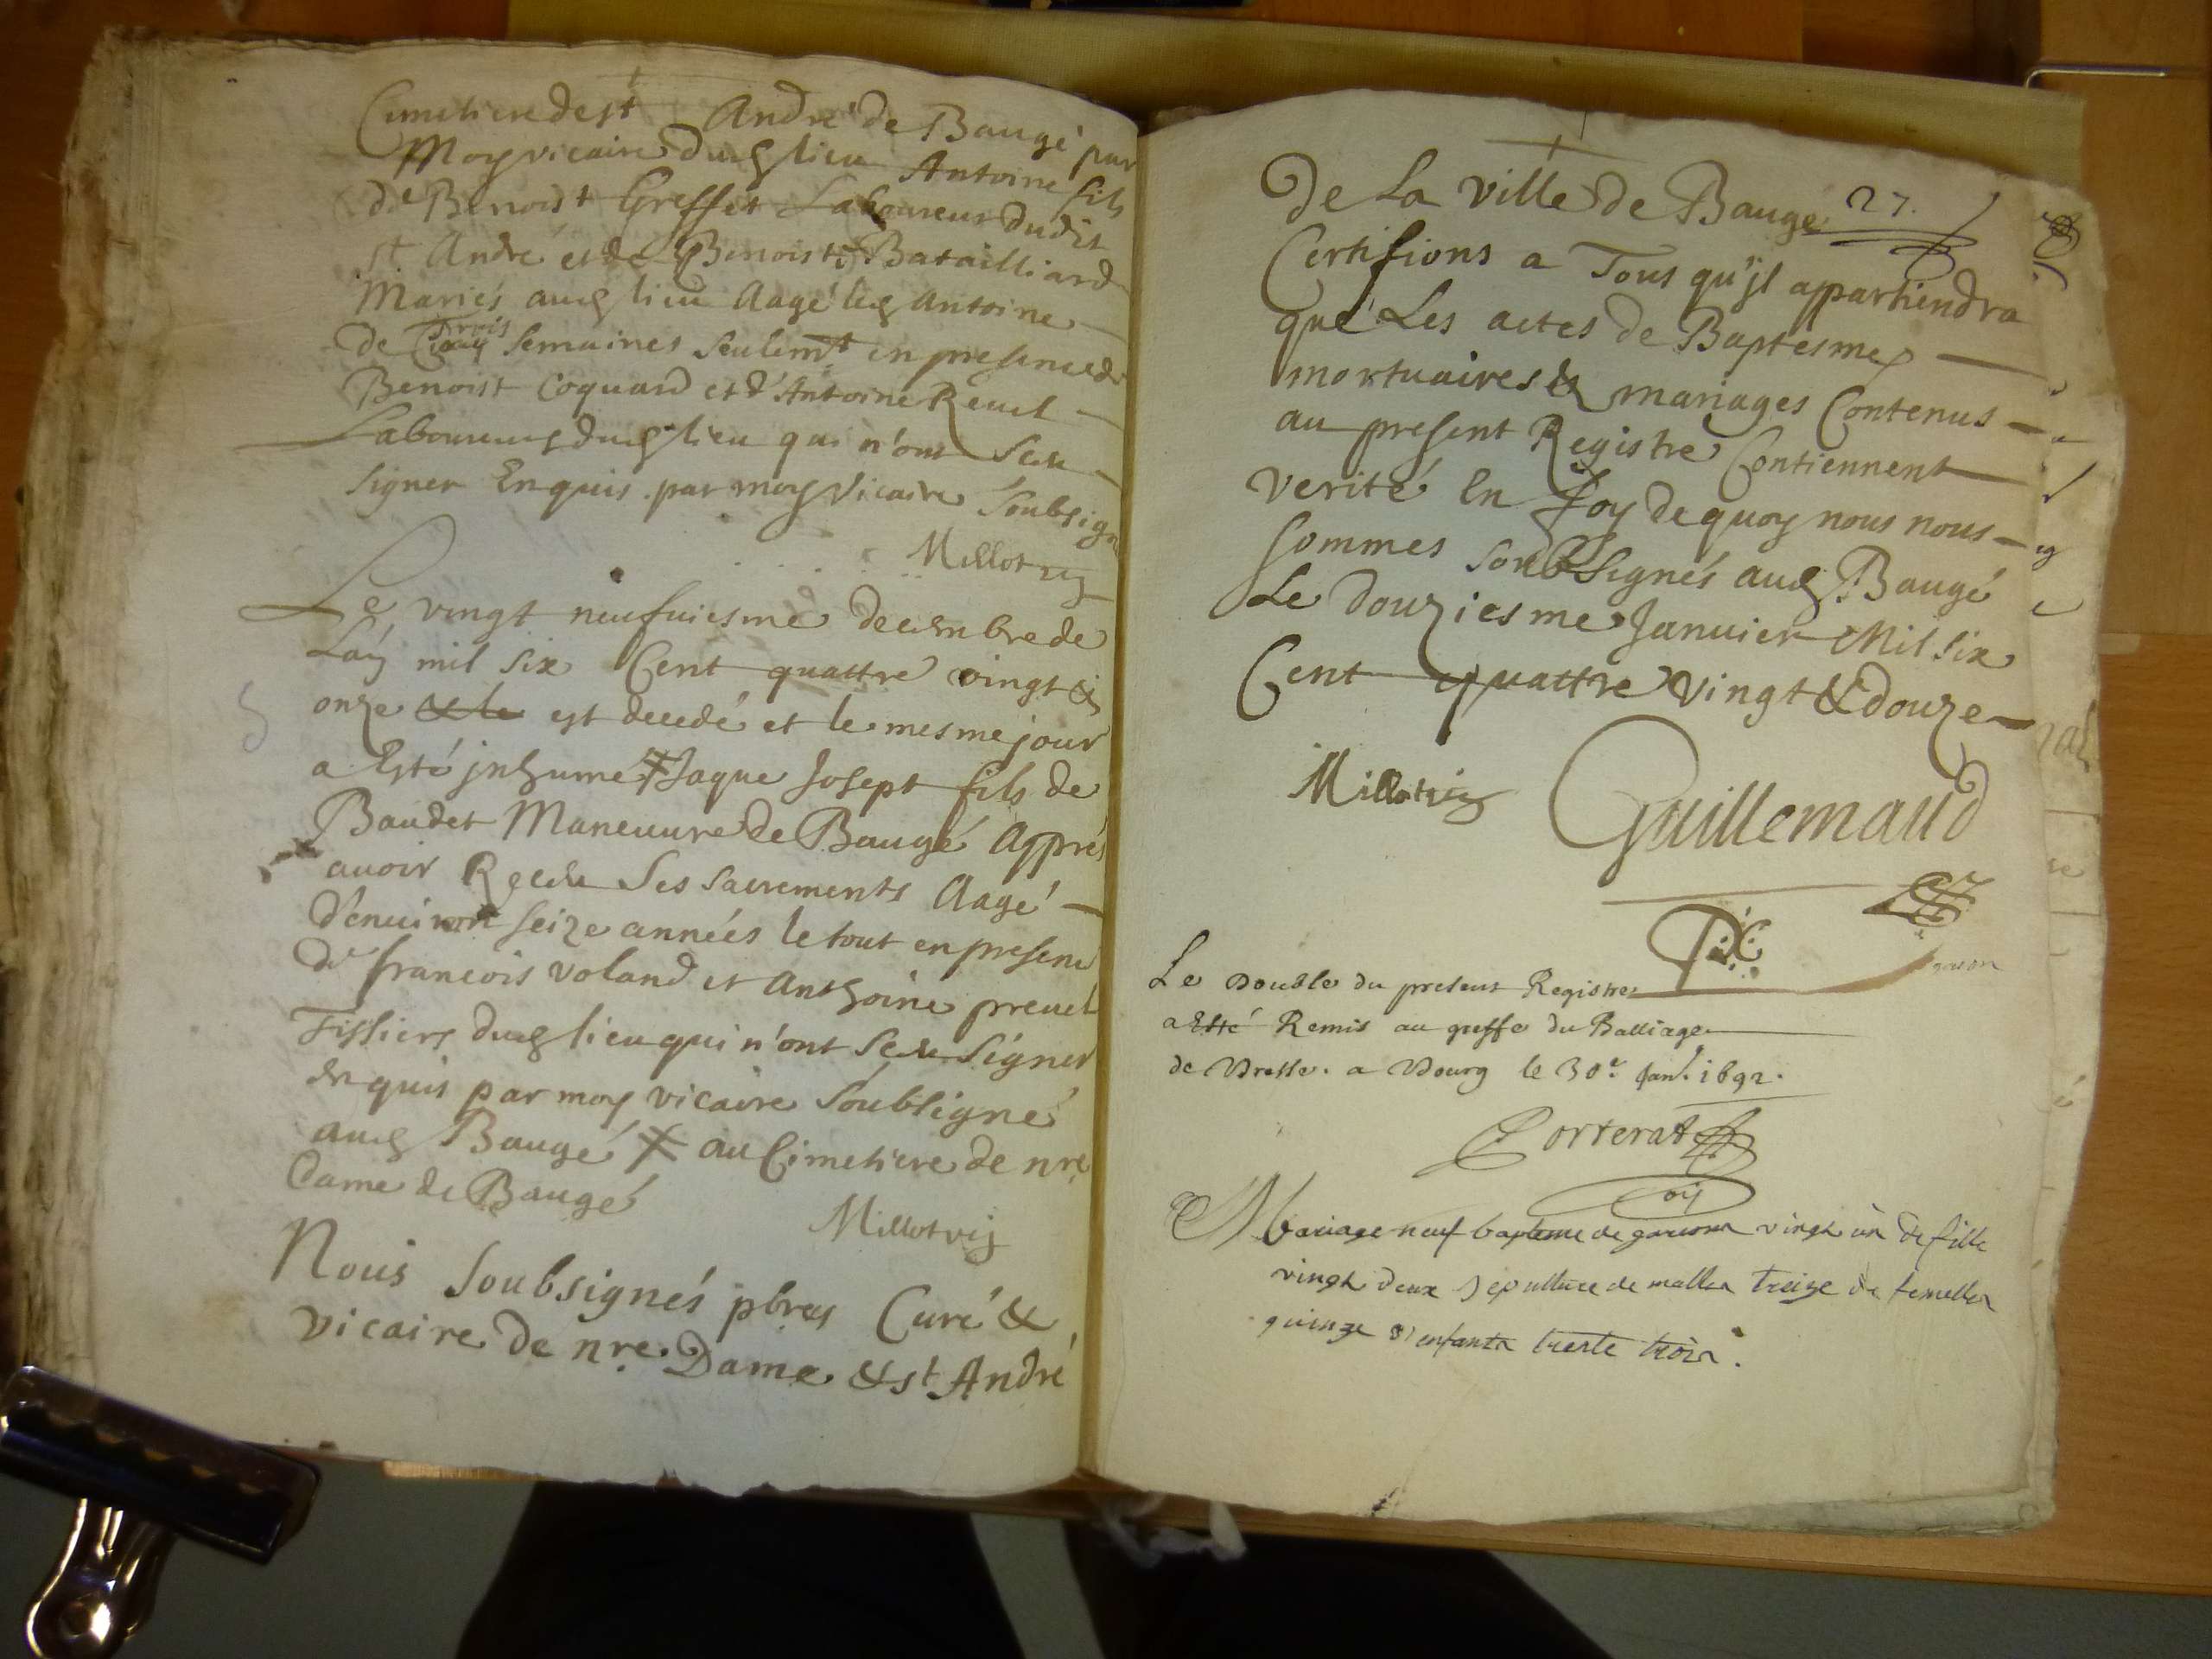 Cimetiere de st André de Baugé par
Moy vicaire dud lieu Antoine fils
de Benoist Greffet Laboureur dudit
st André et de Benoiste Batailliard
Mariés aud lieu Aagé led Antoine
de trois semaines seulemt en presence de
Benoist Coquard et d'Antoine Revel
Laboureurs dud lieu qui n'ont sceu
signer Enquis par moy vicaire soubsigné
Millot vic
Le vingt neufuiesme decembre de
Lan mil six Cent quattre vingt &
onze & le est decedé et le mesme jour
a Esté inhumé Jaque Josept fils de
Baudet Maneuure de Baugé Apprés
auoir Receu Ses sacrements Aagé
d'enuiron seize années le tout en presence
de francois voland et Anthoine preuel
Tissiers dud lieu qui n'ont sceu signer
enquis par moy vicaire soubsigné
aud Baugé au Cimetiere de nre
Dame de Baugé
Millot vic
Nous soubsignés pbres Curé &
vicaire de nre. Dame & st André
de La ville de Baugé 27.
Certifions a Tous qu'jl appartiendra
que Les actes de Baptesmes
mortuaires & mariages Contenus
au present Registre Contiennent
verité En foy de quoy nous nous
sommes soubsignés aud Baugé
Le douziesme Januier Mil six
Cent quattre vingt & douze
Millot vic Guillemaud
Le Double du present Registre
a Esté Remis au greffe du Balliage
de Bresse. a Bourg le 30e. Janr. 1692.
Corterat
Mariage neuf bapteme de garcons vingt un de fille
vingt deux sepulture de malles treize de femelles
quinze d'enfants trente trois.